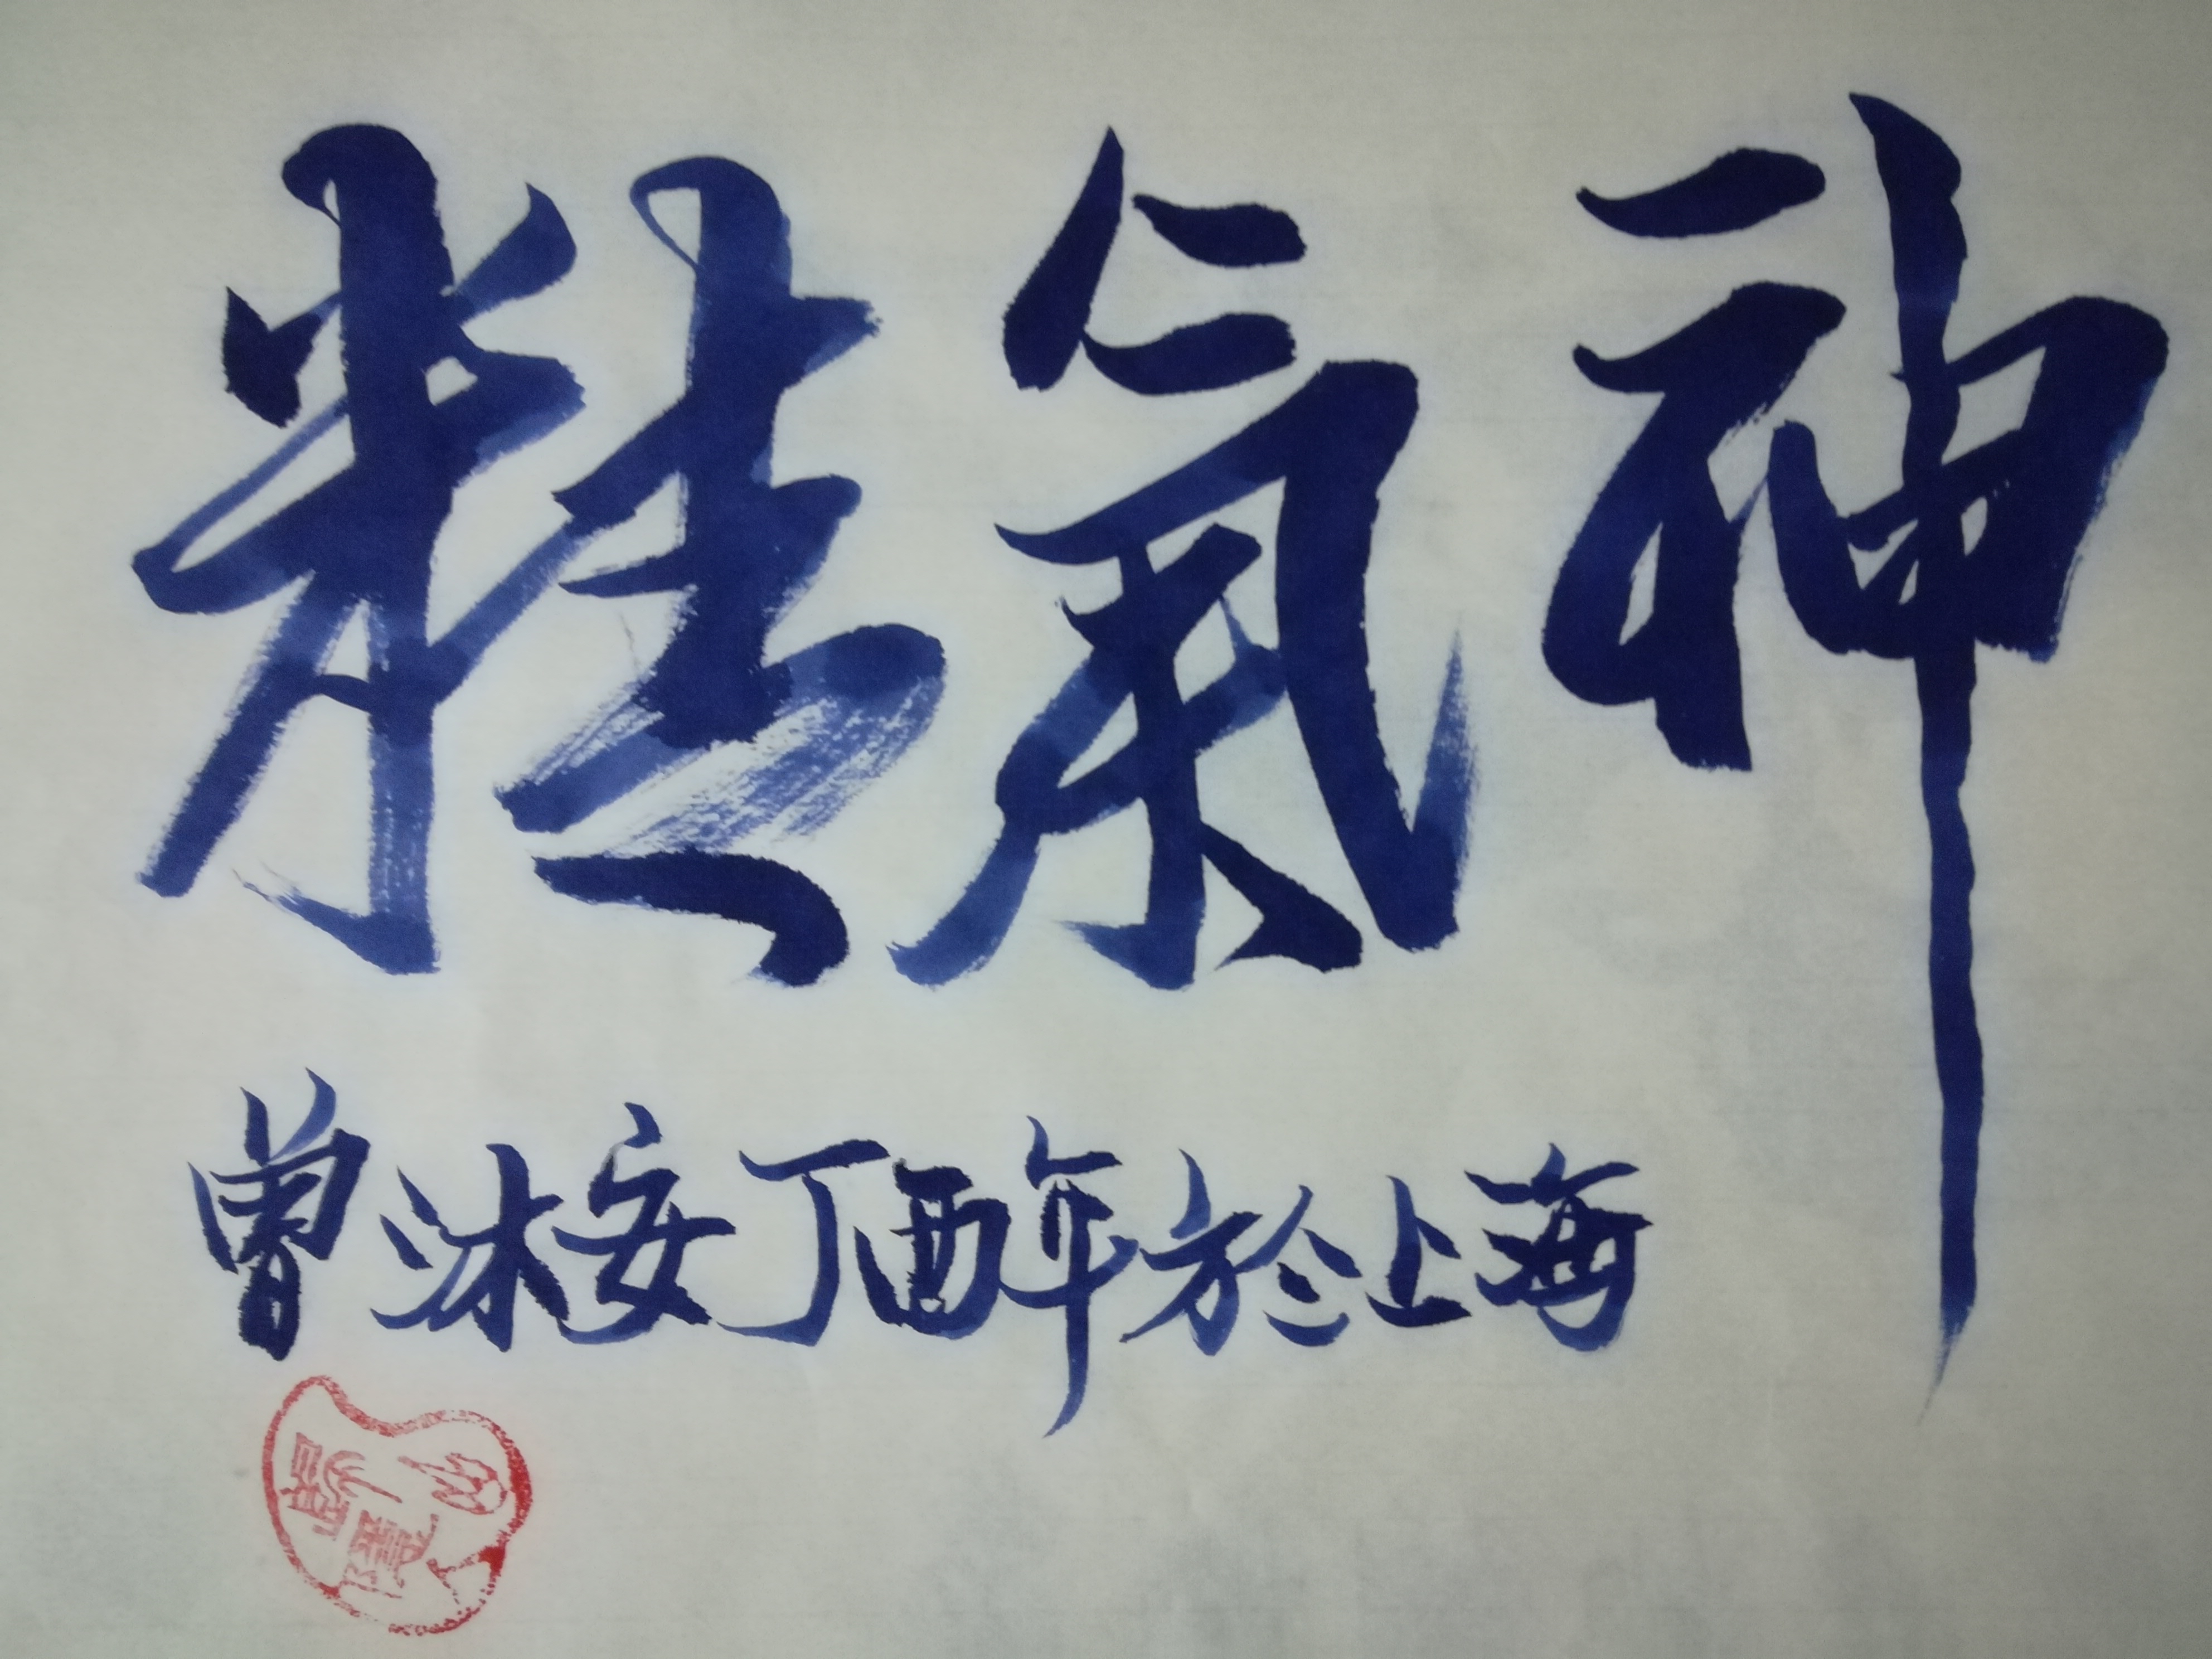 精氣神
曾沐安丁酉年於上海